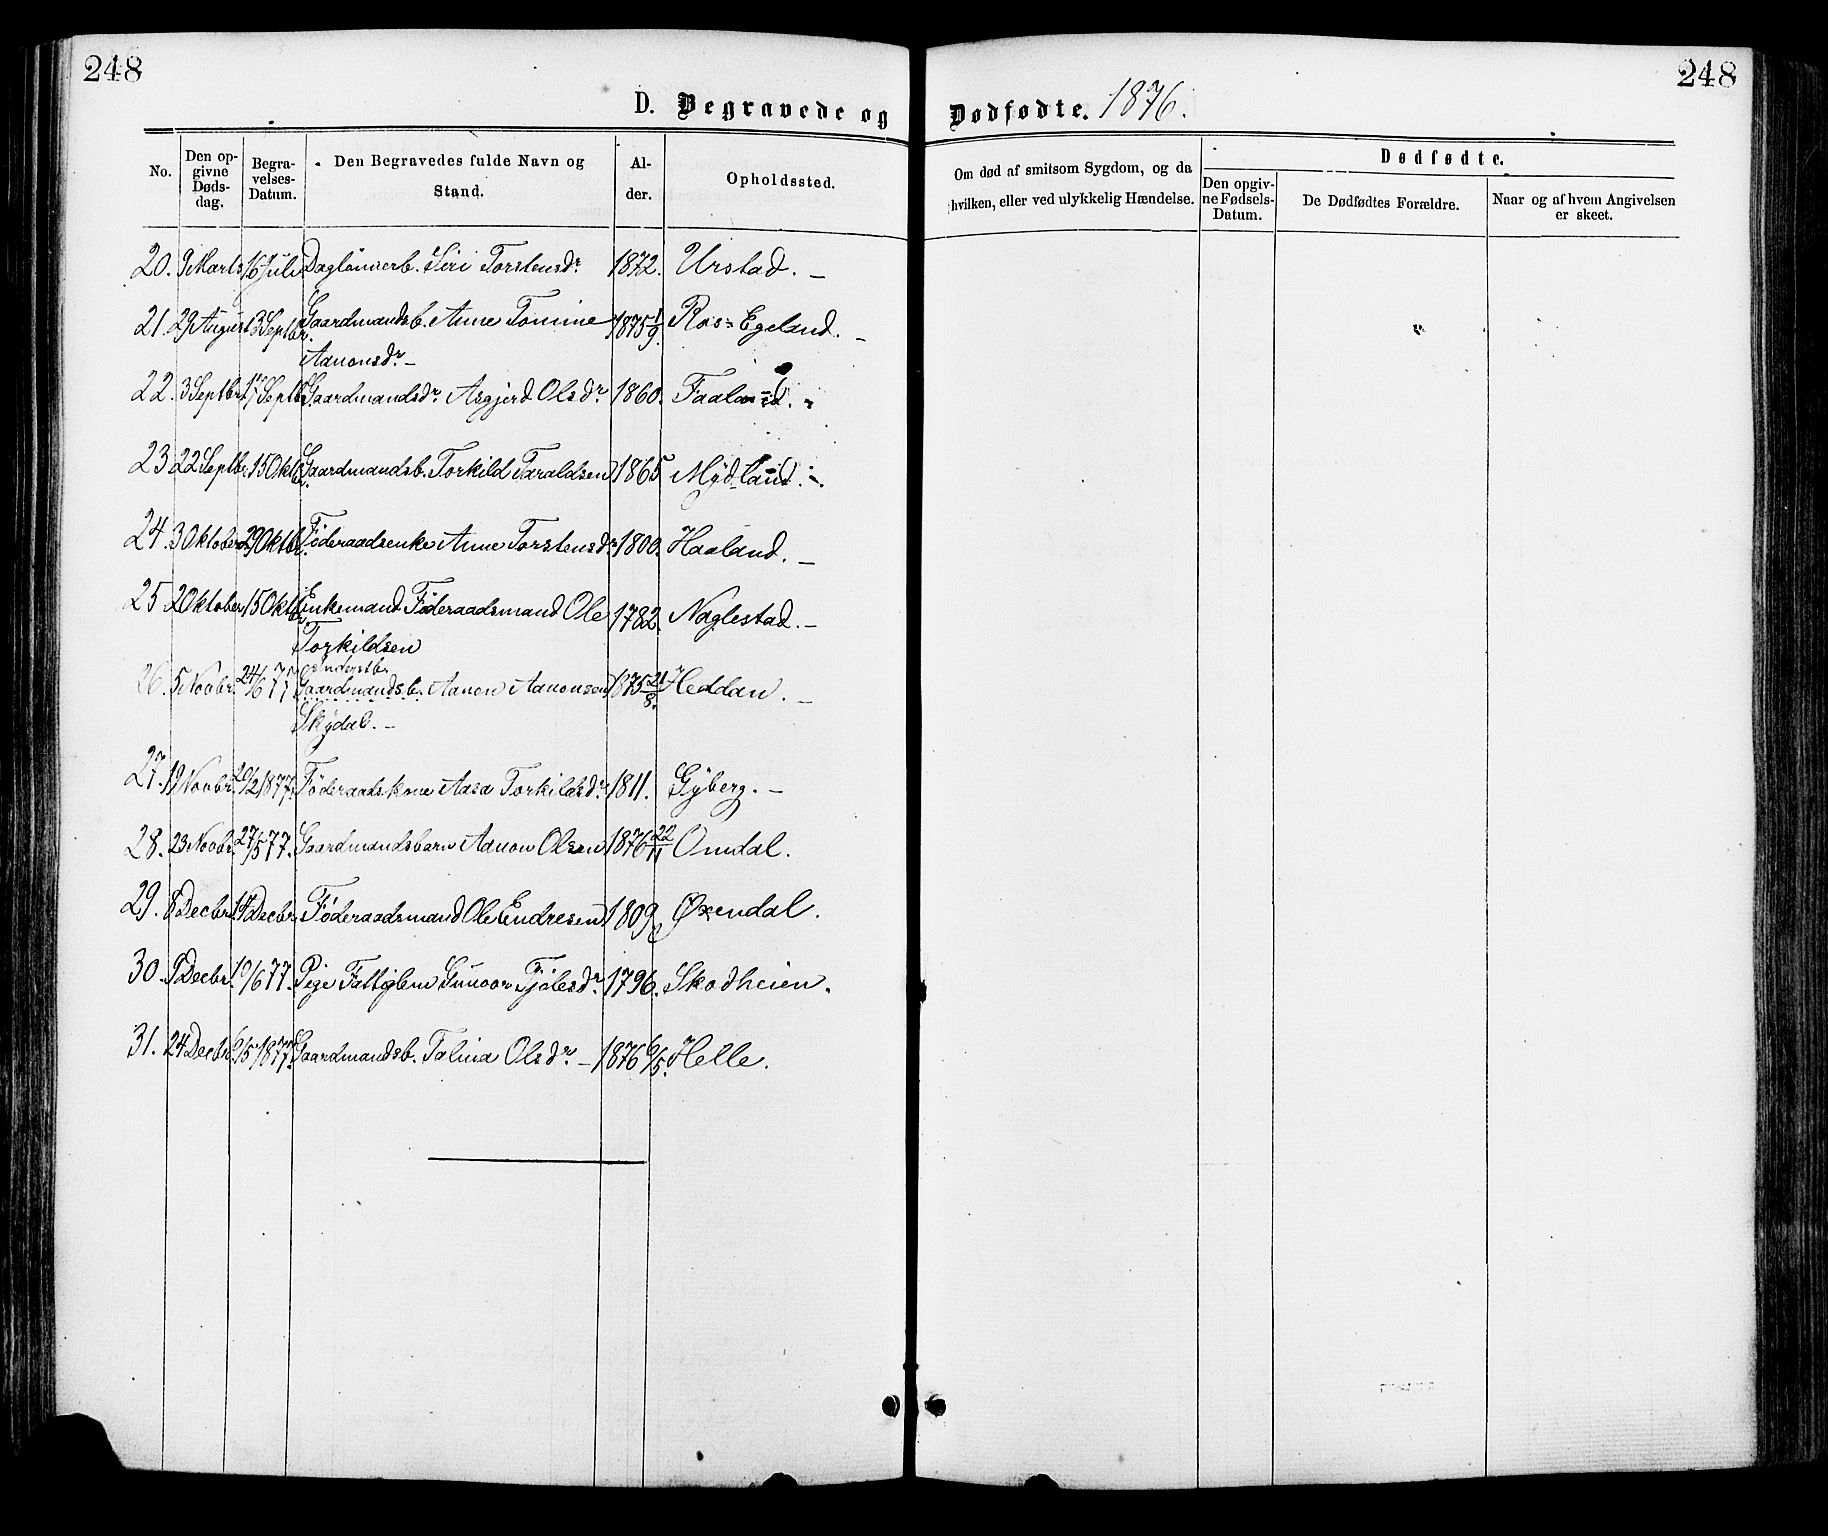 248
248
D. Begravede og Dødfødte. 1876.
No.
Den opgivne Dødsdag.
Begravelses-Datum.
Den Begravedes fulde Navn og Stand.
Alder.
Opholdssted.
Om død af smitsom Sygdom, og da hvilken, eller ved ulykkelig Hændelse.
Dødfødte.
Den opgivne Fødsels-Datum.
De Dødfødtes Forældre.
Naar og af hvem Angivelsen er skeet.
20. 9 Marts 16 Juli Daglönnerb. Siri Torstensdr 1872. Urstad. –
21. 29 August 3 Septbr. Gaardmandsb. Anne Tomine 1875 1/9. Ros=Egeland. –
Aanonsdr –
22. 3 Septbr. 17 Septbr. Gaardmandsdr Asgjerd Olsdr 1860. Faaland.
23. 22 Septbr. 15 Oktbr. Gaardmandsb. Torkild Taraldsen 1865 Mydland. –
24. 3 Oktober 29 Oktbr. Føderaadsenke Anne Torstensdr 1800. Haaland. –
25. 2 Oktober 15 Oktbr Enkemand Føderaadsmand Ole 1782. Naglestad. –
Torkildsen
Inderstb.
26. 5 Novbr. 24/6 77 Gaardmandsb. Aanon Aanonsen 1875 21/8. Heddan. –
Skydal. –
27. 19 Novbr. 20/2 1877. Føderaadskone Aasa Torkildsdr 1811. Gyberg. –
28. 23 Novbr. 27/5 77. Gaardmandsbarn Aanon Olsen 1876 22/11 Omdal.
29. 8 Decbr. 14 Decbr. Føderaadsmand Ole Endresen 1809. Øxendal.
30. 9 Decbr. 10/6 77. Pige Fattiglem Gunvor Fjölesdr 1796. Skodheien.
31. 24 Decbr. 6/5 1877. Gaardmandsb. Talina Olsdr – 1876 6/5. Helle.